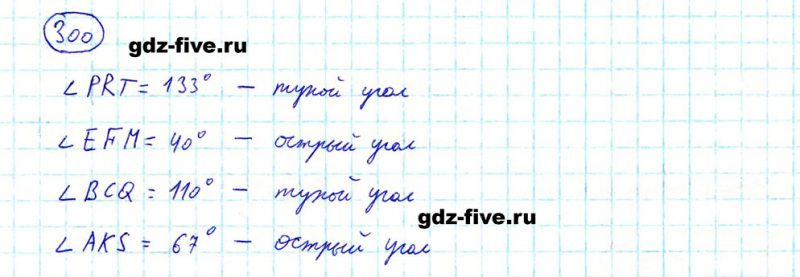 300
gdz-five.ru
∠PRT = 133° — тупой угол
∠EFM = 40° — острый угол
∠BCQ = 110° — тупой угол
gdz-five.ru
∠AKS = 67° — острый угол